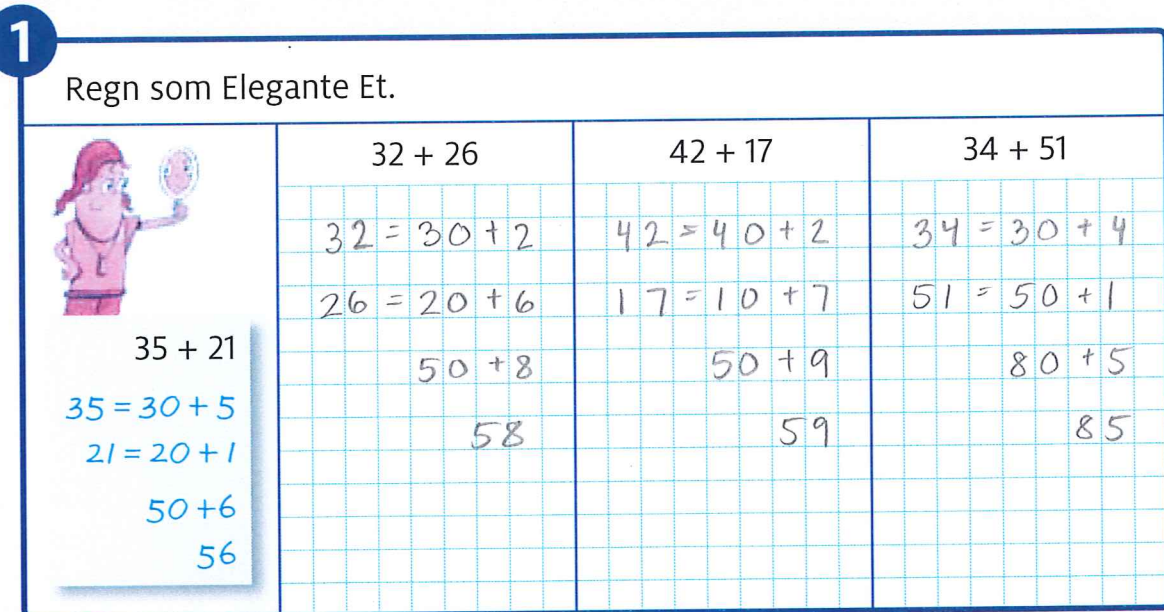 1
Regn som Elegante Et.
35 + 21
35 = 30 + 5
21 = 20 + 1
50 + 6
56
32 + 26
32 = 30 + 2
26 = 20 + 6
50 + 8
58
42 + 17
42 = 40 + 2
17 = 10 + 7
50 + 9
59
34 + 51
34 = 30 + 4
51 = 50 + 1
80 + 5
85